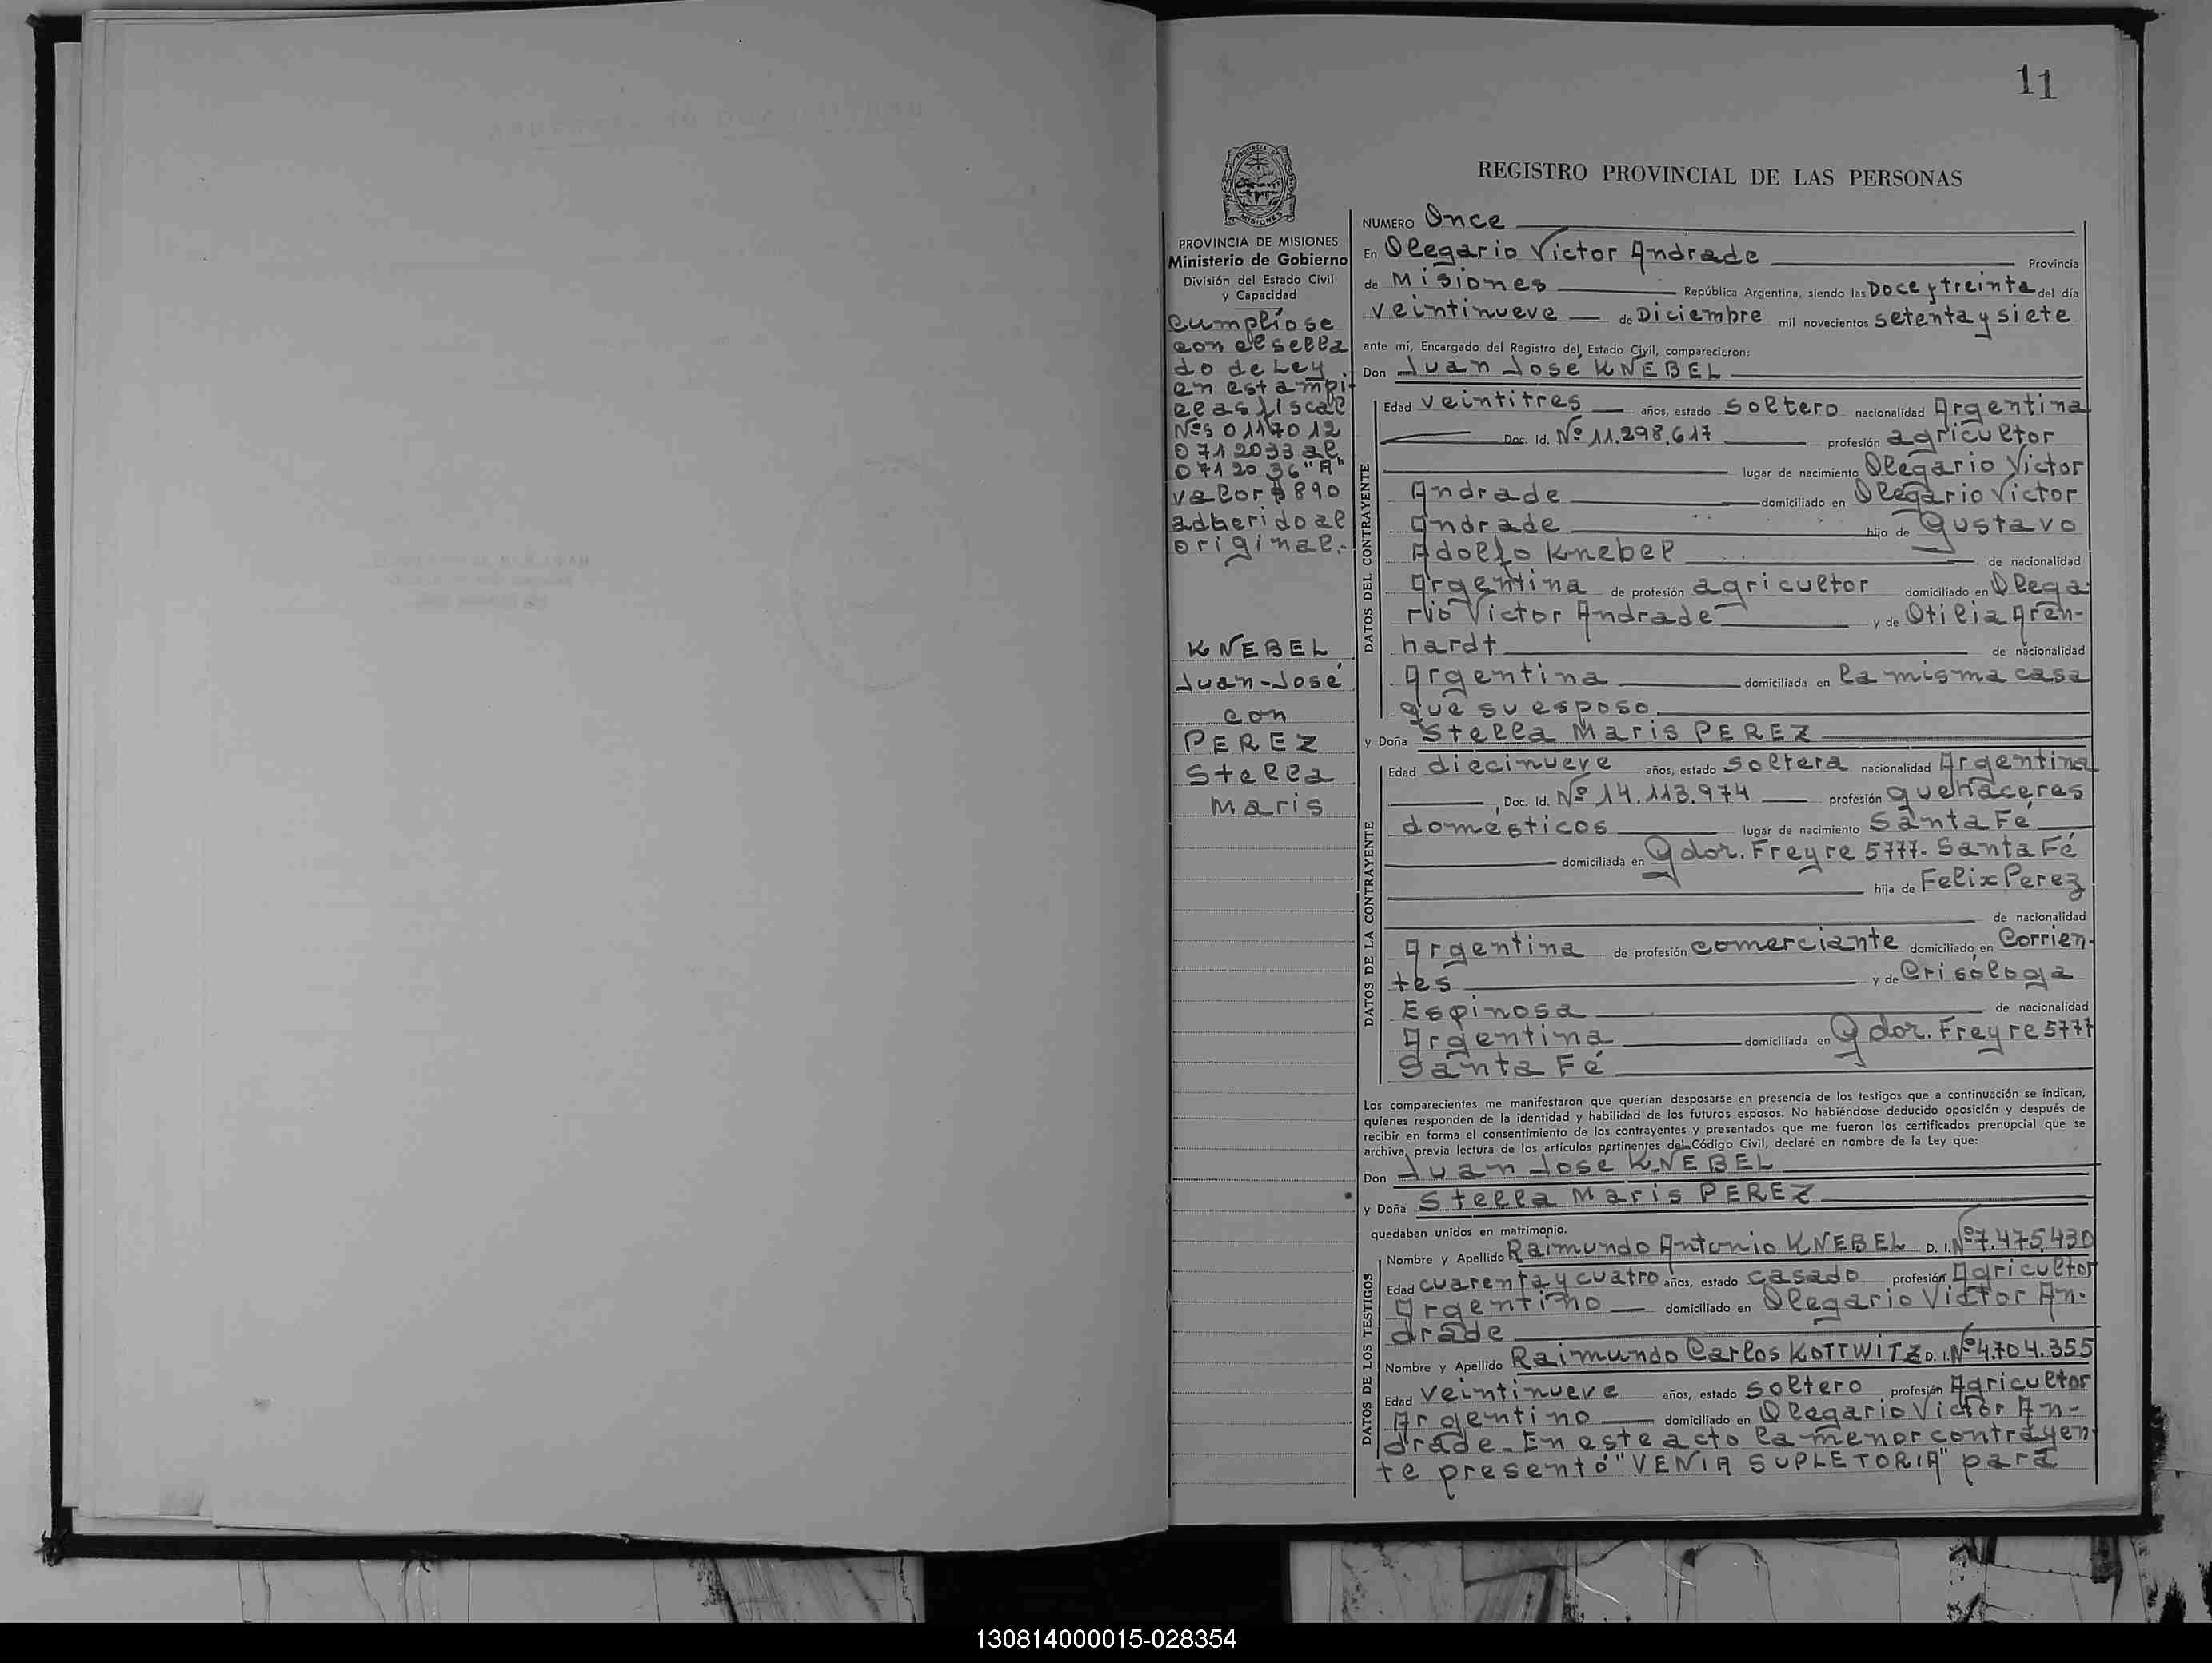 11
REGISTRO PROVINCIAL DE LAS PERSONAS
PROVINCIA DE
MISIONES
PROVINCIA DE MISIONES
Ministerio de Gobierno
División del Estado Civil
y Capacidad
Cumplióse
con el sella
do de Ley
en estampi
llas fiscal
Nºs 0117012
0712033 al
0712036 "A"
valor $ 890
adherido al
original.-
KNEBEL
Juan-José
con
PEREZ
Stella
Maris
NUMERO Once
En Olegario Victor Andrade Provincia
de Misiones República Argentina, siendo las Doce y treinta del día
veintinueve de Diciembre mil novecientos setenta y siete
ante mí, Encargado del Registro del Estado Civil, comparecieron:
Don Juan José KNEBEL
DATOS DEL CONTRAYENTE
Edad veintitres años, estado soltero nacionalidad Argentina
Doc. Id. Nº 11.298.617 profesión agricultor
lugar de nacimiento Olegario Victor
Andrade domiciliado en Olegario Victor
Andrade hijo de Gustavo
Adolfo Knebel de nacionalidad
Argentina de profesión agricultor domiciliado en Olega
rio Victor Andrade y de Otilia Aren-
hardt de nacionalidad
Argentina domiciliada en la misma casa
que su esposo.
y Doña Stella Maris PEREZ
DATOS DE LA CONTRAYENTE
Edad diecinueve años, estado soltera nacionalidad Argentina
, Doc. Id. Nº 14.113.974 profesión quehaceres
domésticos lugar de nacimiento Santa Fé
domiciliada en Gdor. Freyre 5777. Santa Fé
hija de Felix Perez
de nacionalidad
Argentina de profesión comerciante domiciliado en Corrien-
tes y de Crisóloga
Espinosa de nacionalidad
Argentina domiciliada en Gdor. Freyre 5777
Santa Fé
Los comparecientes me manifestaron que querían desposarse en presencia de los testigos que a continuación se indican,
quienes responden de la identidad y habilidad de los futuros esposos. No habiéndose deducido oposición y después de
recibir en forma el consentimiento de los contrayentes y presentados que me fueron los certificados prenupcial que se
archiva, previa lectura de los artículos pertinentes del Código Civil, declaré en nombre de la Ley que:
Don Juan José KNEBEL
y Doña Stella Maris PEREZ
quedaban unidos en matrimonio.
DATOS DE LOS TESTIGOS
Nombre y Apellido Raimundo Antonio KNEBEL D. I. Nº 7.475.430
Edad cuarenta y cuatro años, estado casado profesión Agricultor
Argentino domiciliado en Olegario Victor An-
drade
Nombre y Apellido Raimundo Carlos KOTTWITZ D. I. Nº 4.704.355
Edad veintinueve años, estado soltero profesión Agricultor
Argentino domiciliado en Olegario Victor An-
drade. En este acto la menor contrayen
te presentó "VENIA SUPLETORIA" para
130814000015-028354